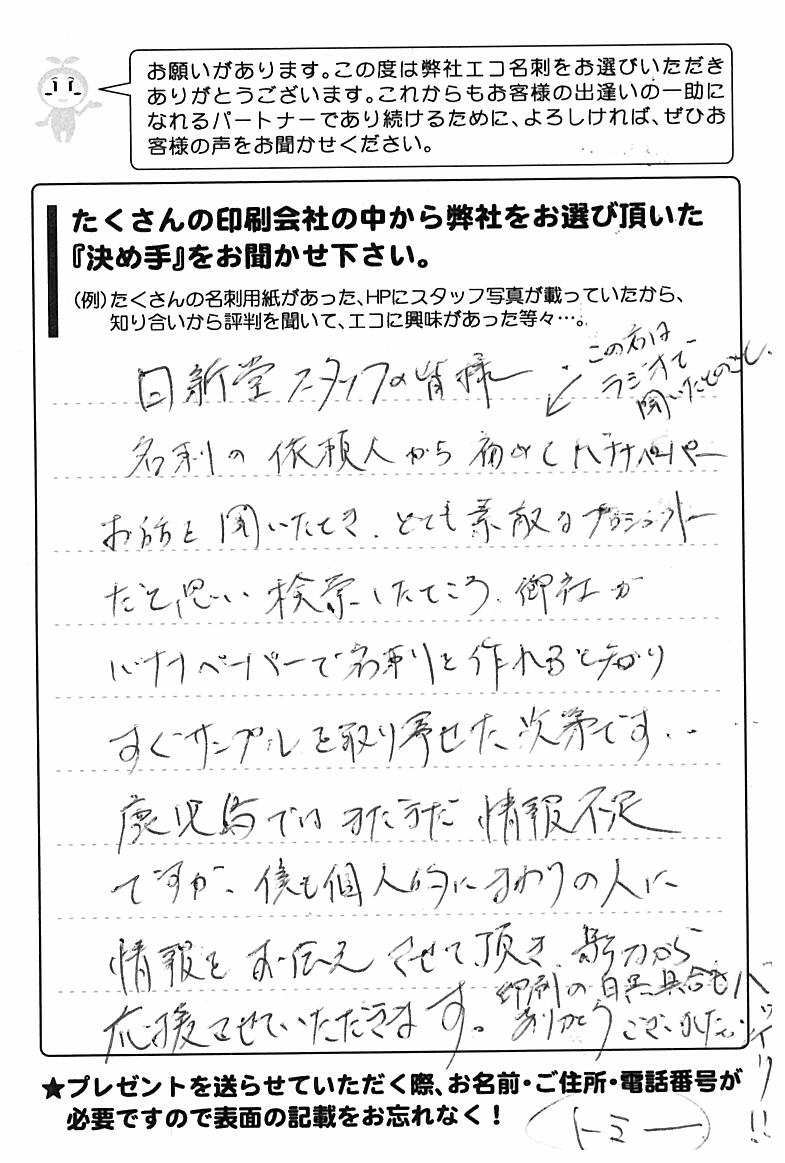 お願いがあります。この度は弊社エコ名刺をお選びいただき
ありがとうございます。これからもお客様の出逢いの一助に
なれるパートナーであり続けるために、よろしければ、ぜひお
客様の声をお聞かせください。
たくさんの印刷会社の中から弊社をお選び頂いた
『決め手』をお聞かせ下さい。
(例)たくさんの名刺用紙があった、HPにスタッフ写真が載っていたから、
知り合いから評判を聞いて、エコに興味があった等々…。
日新堂スタッフの皆様
この方は
ラジオで
聞いたとのこと、
名刺の依頼人から初めてバナナペーパー
お話を聞いたとき、とても素敵なプロジェクト
だと思い検索したところ、御社が
バナナペーパーで名刺を作れると知り
すぐサンプルを取り寄せた次第です...
鹿児島ではまだまだ情報不足
ですが、僕も個人的にまわりの人に
情報をお伝えさせて頂き、影乍から
応援させていただきます。
印刷の白黒具合もバッチリ!!
ありがとうございました。
★プレゼントを送らせていただく際、お名前・ご住所・電話番号が
必要ですので表面の記載をお忘れなく!
トミー